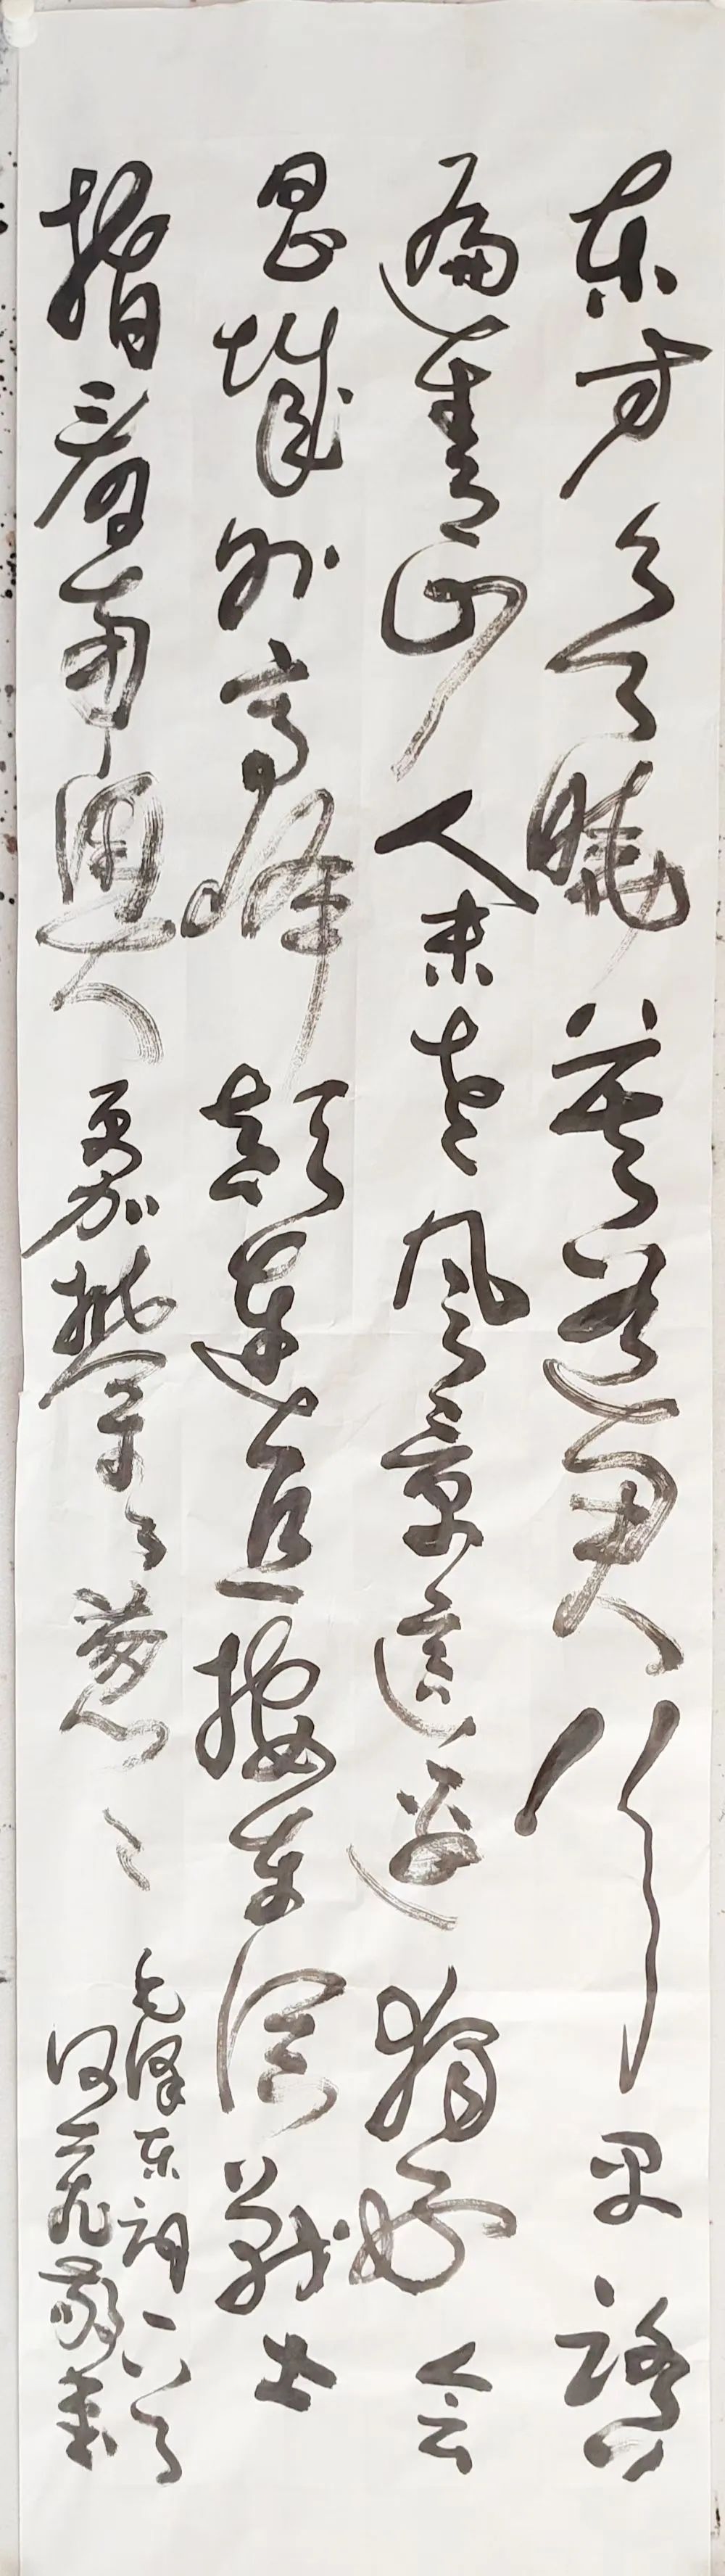 东方欲晓莫道君行早踏
遍青山人未老风景这边独好会
昌城外高峰颠连直接东溟战士
指看南粤更加郁々葱々
毛泽东词一首
何 敬书